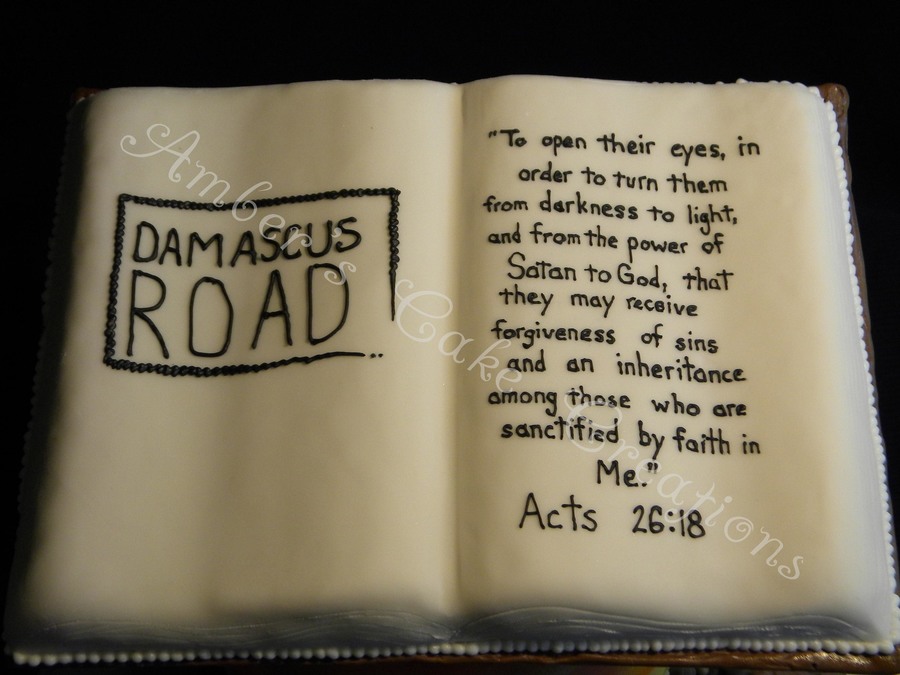 DAMASCUS
ROAD
"To open their eyes, in
order to turn them
from darkness to light,
and from the power of
Satan to God, that
they may receive
forgiveness of sins
and an inheritance
among those who are
sanctified by faith in
Me."
Acts 26:18
Amber's Cake Creations